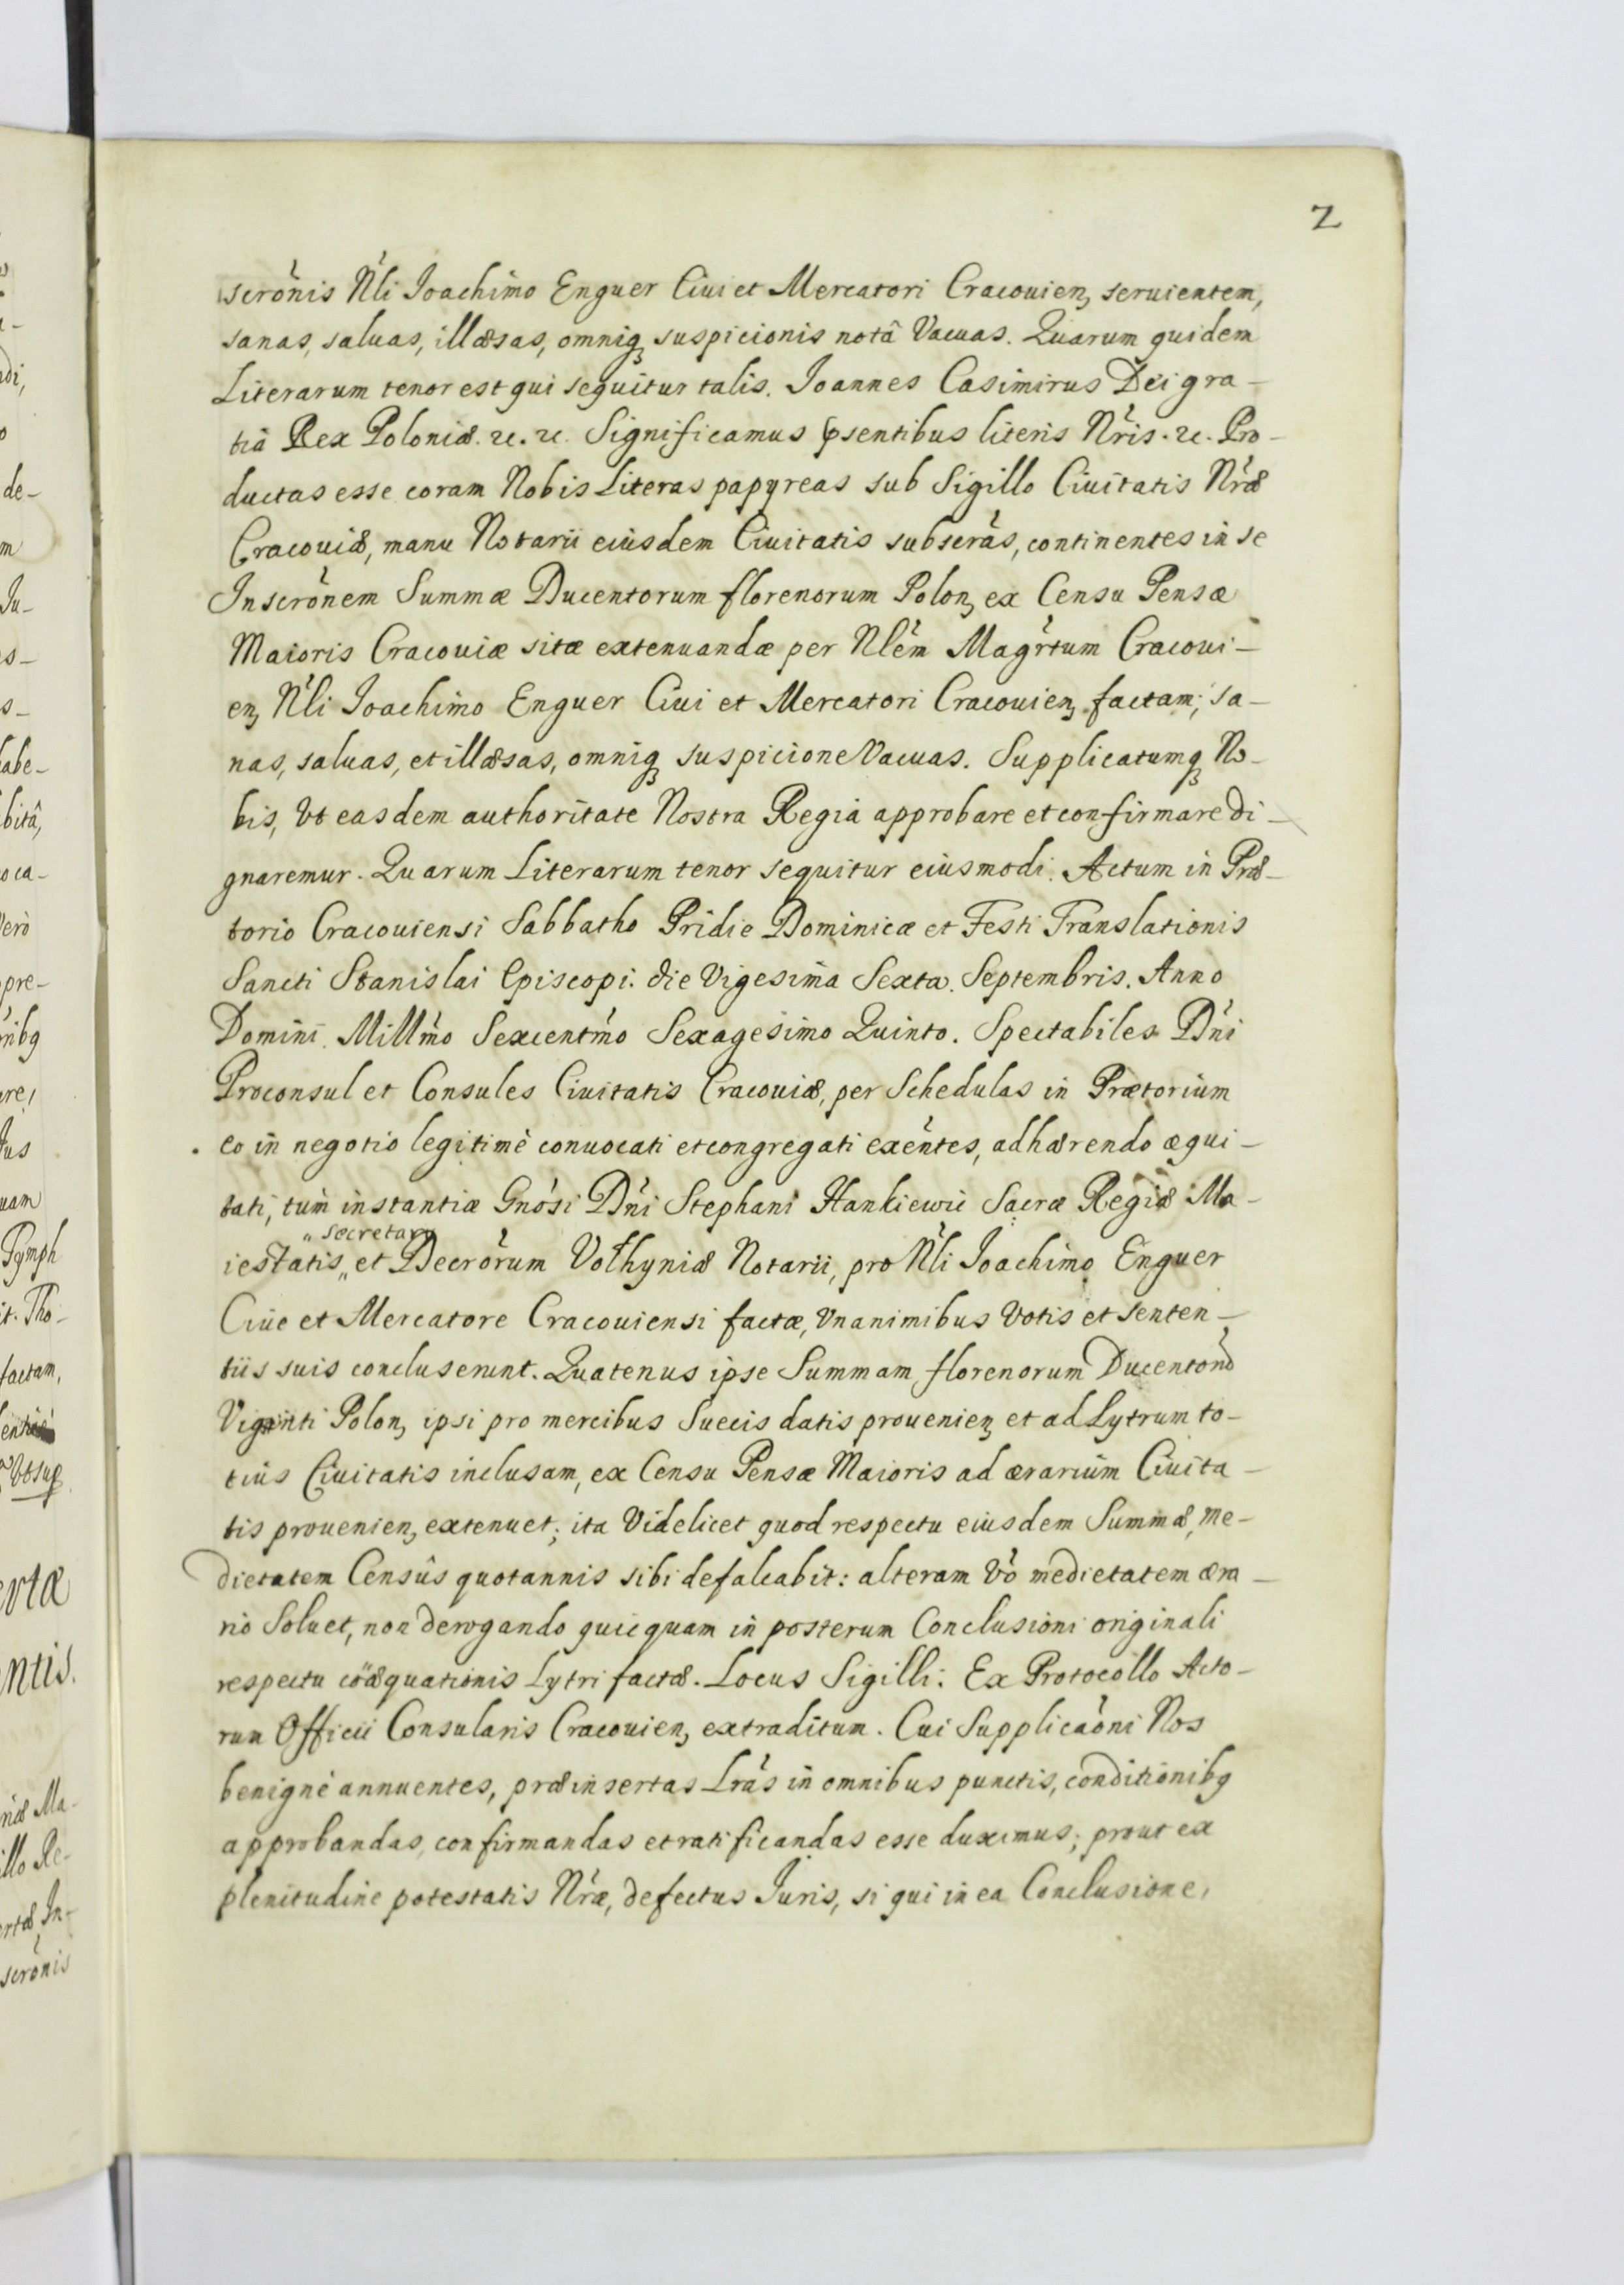 2
scrõnis Nli Ioachimo Enguer Ciui et Mercatori Cracouien, seruientem,
sanas, saluas, illæsas, omniq; suspicionis notâ Vacuas. Quarum quidem
Literarum tenor est qui sequitur talis. Ioannes Casimirus Dei gra-
tiâ Rex Poloniæ. &c. &c. Significamus p̃sentibus literis Nr̃is. &c. Pro-
ductas esse coram Nobis Literas papyreas sub Sigillo Ciuitatis Nr̃æ
Cracouiæ, manu Notarii eiusdem Ciuitatis subscrãs, continentes in se
Inscrõnem Summæ Ducentorum florenorum Polon, ex Censu Pensæ
Maioris Cracouiæ sitæ extenuandæ per Nlẽm Magr̃tum Cracoui-
en, Nli Ioachimo Enguer Ciui et Mercatori Cracouien, factam; sa-
nas, saluas, et illæsas, omniq; suspicione Vacuas. Supplicatumq; No-
bis, Vt easdem authoritate Nostra Regia approbare et confirmare di-
gnaremur. Quarum Literarum tenor sequitur eiusmodi. Actum in Præ-
torio Cracouiensi Sabbatho Pridie Dominicæ et Festi Translationis
Sancti Stanislai Episcopi. die Vigesima Sexta. Septembris. Anno
Domini Millm̃o Sexcentm̃o Sexagesimo Quinto. Spectabiles Dñi
Proconsul et Consules Ciuitatis Cracouiæ, per Schedulas in Prætorium
eo in negotio legitimè conuocati et congregati exẽntes, adhærendo æqui-
tati, tum instantiæ Gnõsi Dñi Stephani Hankiewic Sacræ Regiæ Ma-
„ secretary
iestatis „ et Decrõrum Vołhyniæ Notarii, pro Nli Ioachimo Enguer
Ciue et Mercatore Cracouiensi factæ, Vnanimibus Votis et senten-
tiis suis concluserunt. Quatenus ipse Summam florenorum Ducentorũ
Viginti Polon, ipsi pro mercibus Suecis datis prouenien, et ad Lytrum to-
tius Ciuitatis inclusam, ex Censu Pensæ Maioris ad ærarium Ciuita-
tis prouenien, extenuet; ita Videlicet quod respectu eiusdem Summæ, me-
dietatem Censûs quotannis sibi defalcabit: alteram Võ medietatem æra-
rio Soluet, non derogando quicquam in posterum Conclusioni originali
respectu cöæquationis Lytri factæ. Locus Sigilli. Ex Protocollo Acto-
rum Officii Consularis Cracouien, extraditum. Cui Supplicaõni Nos
benignè annuentes, præinsertas Lrãs in omnibus punctis, conditionibq
approbandas, confirmandas et ratificandas esse duximus; prout ex
plenitudine potestatis Nr̃æ, defectus Iuris, si qui in ea Conclusione,